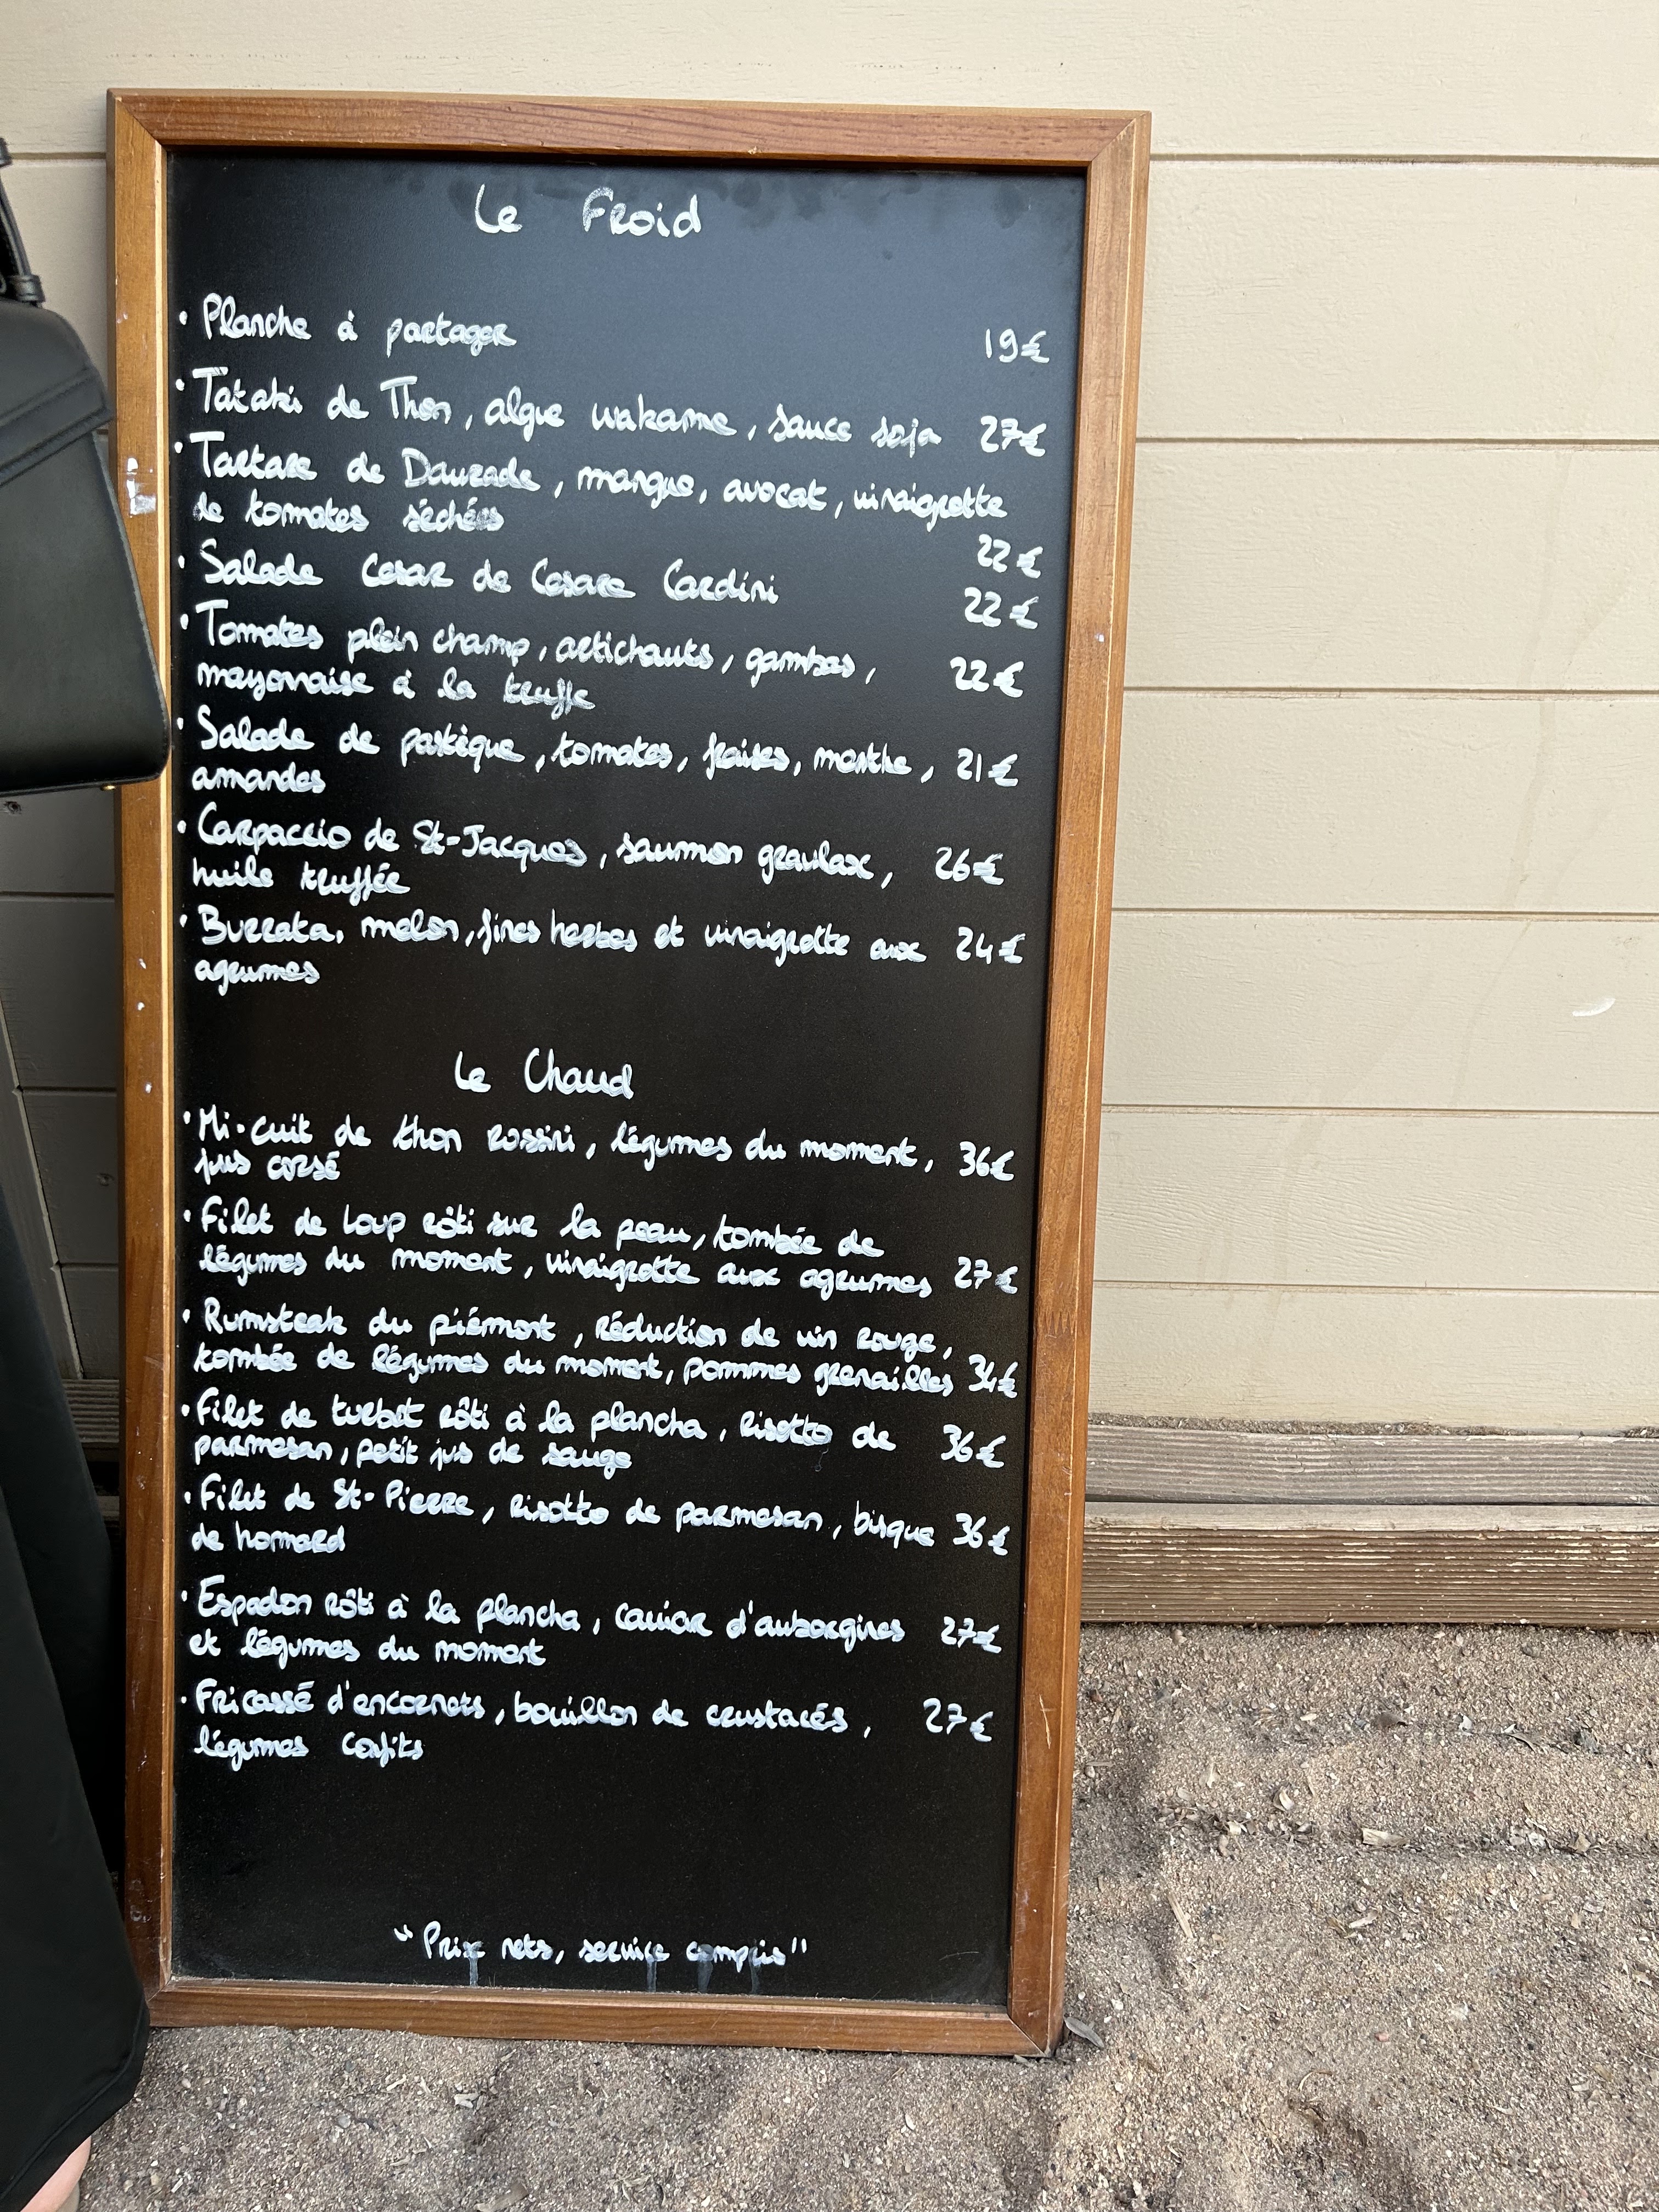 Le Froid
• Planche à partager 19€
• Tataki de Thon, algue wakame, sauce soja 27€
• Tartare de Daurade, mangue, avocat, vinaigrette
de tomates séchées
22€
• Salade Cesar de Cesare Cardini 22€
• Tomates plein champ, artichauts, gambas, 22€
mayonnaise à la truffe
• Salade de pastèque, tomates, fraises, menthe, 21€
amandes
• Carpaccio de St-Jacques, saumon gravlax, 26€
huile truffée
• Burrata, melon, fines herbes et vinaigrette aux 24€
agrumes
Le Chaud
• Mi-cuit de thon rossini, légumes du moment, 36€
jus corsé
• Filet de Loup rôti sur la peau, tombée de
légumes du moment, vinaigrette aux agrumes 27€
• Rumsteak du piémont, réduction de vin rouge,
tombée de légumes du moment, pommes grenailles 34€
• Filet de turbot rôti à la plancha, risotto de 36€
parmesan, petit jus de sauge
• Filet de St-Pierre, risotto de parmesan, bisque 36€
de homard
• Espadon rôti à la plancha, caviar d'aubergines 27€
et légumes du moment
• Fricassé d'encornets, bouillon de crustacés, 27€
légumes confits
"Prix nets, service compris"